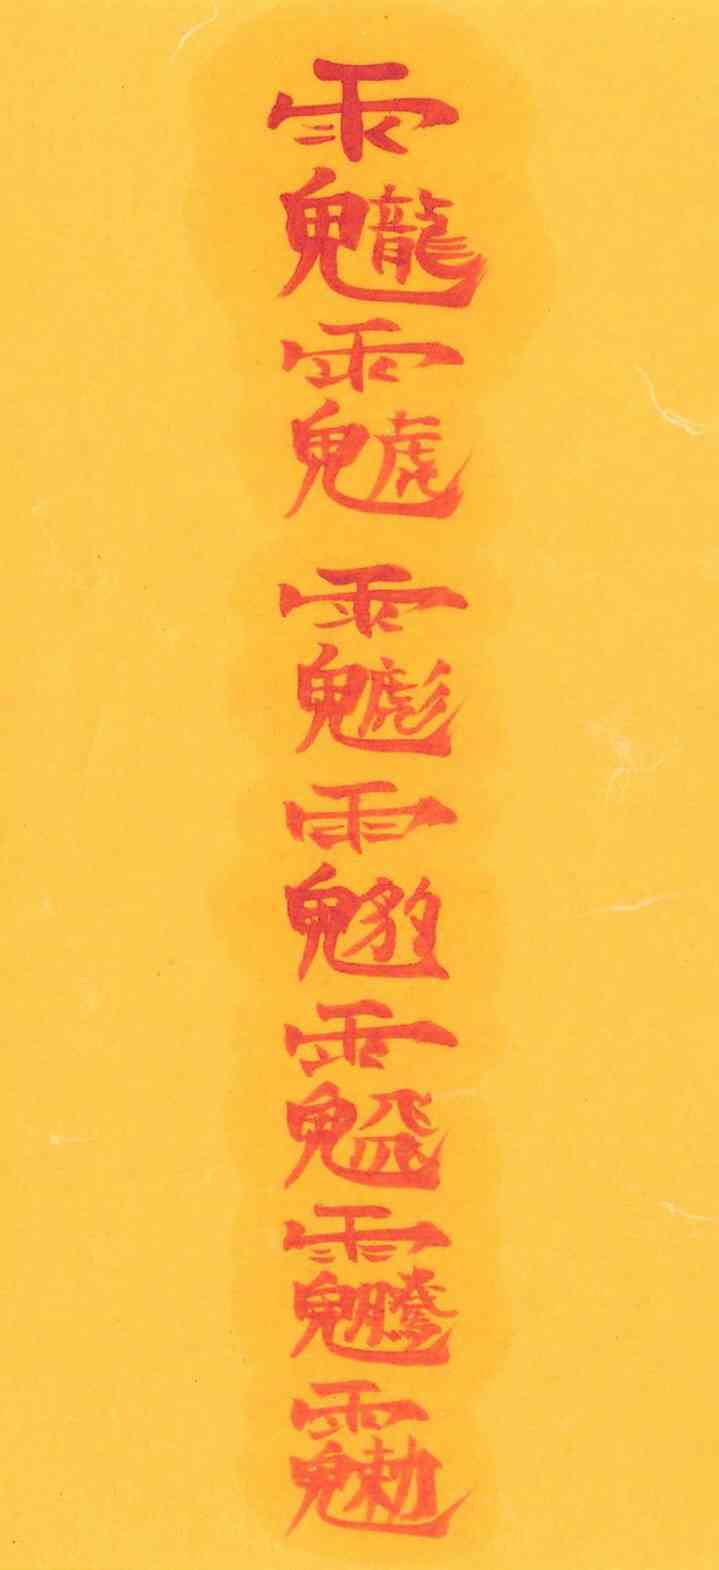 雨鬼龍雨鬼虎雨鬼彪雨鬼豹雨鬼飛雨鬼騰雨鬼勅